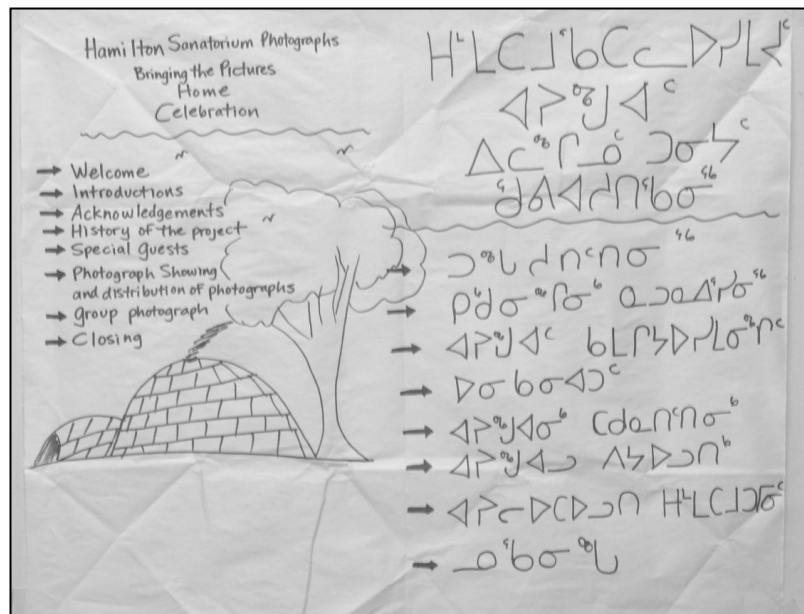 Hamilton Sanatorium Photographs
Bringing the Pictures
Home
Celebration
→ Welcome
→ Introductions
→ Acknowledgements
→ History of the project
→ Special guests
→ Photograph Showing
and distribution of photographs
→ group photograph
→ Closing
ᕼᒻᒪᑕᒧᖃᑕᓚᐅᓯᒪᔪᑦ
ᐊᔨᙳᐊᑦ
ᐃᓚᖏᓄᑦ ᑐᓂᔭᑦ
ᖁᕕᐊᓱᑎᖃᓂᖅ
→ ᑐᙵᓱᑎᑦᑎᓂᖅ
→ ᑭᒃᑯᓂᖏᓂᒃ ᓇᓗᓇᐃᕐᓯᓂᖅ
→ ᐊᔨᙳᐊᑦ
→ ᐅᓂᑲᓂᐊᑐᑦ
→ ᐊᔨᙳᐊᓂᒃ ᑕᑯᓇᑎᑦᑎᓂᒃ
→ ᐊᔨᙳᐊᓗ ᐱᔭᐅᓗᑎᒃ
→ ᐊᔨᓕᐅᑕᐅᓗᑎ
→ ᓄᖃᓂᖓ